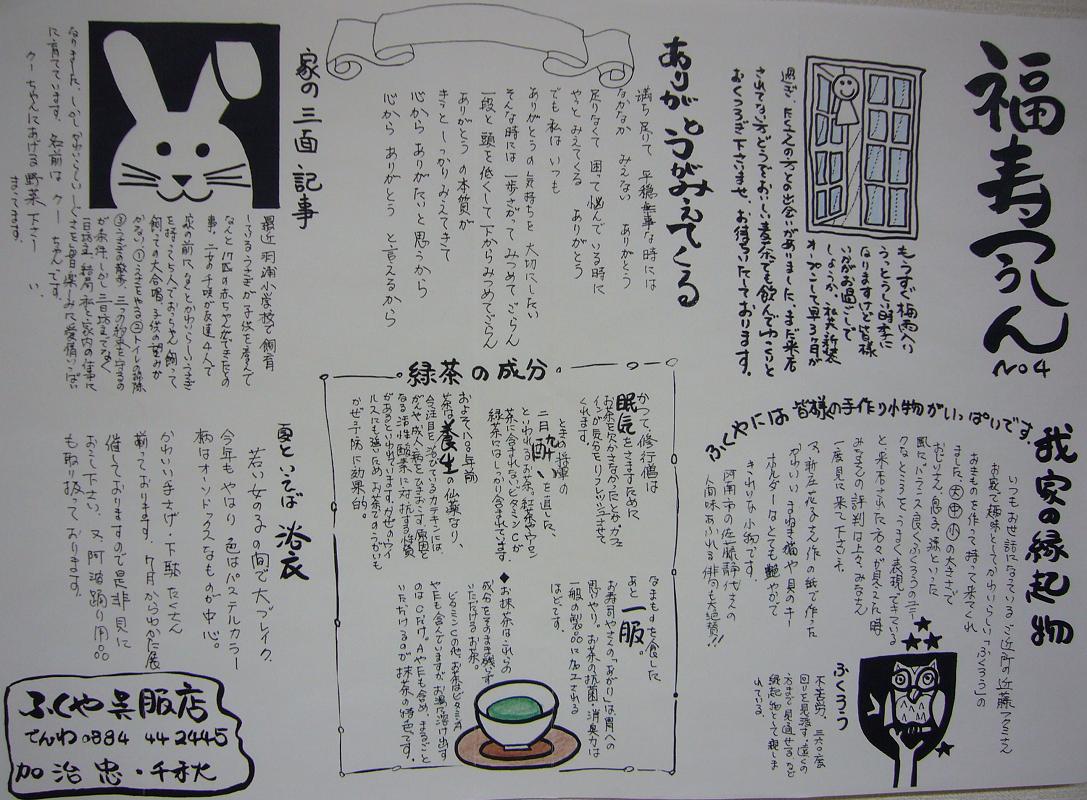 福寿つうしん
No4
もうすぐ梅雨入り
うっとうしい時季に
なりますけど皆様
いかがお過ごしで
しょうか。私共、新装
オープンして早3ヶ月が
過ぎ、たくさんの方との出会いがありました。まだ来店
されてない方どうぞおいしい麦茶でも飲んでゆっくりと
おくつろぎ下さいませ。お待ちいたしております。
ありがとうがみえてくる
満ち足りて 平穏無事な時には
なかなか みえない ありがとう
足りなくて 困って 悩んでいる時に
やっとみえてくる ありがとう
でも私はいつも
ありがとうの気持ちを 大切にしたい
そんな時には 一歩さがって みつめてごらん
一段と頭を低くして 下からみつめてごらん
ありがとうの本質が
きっとしっかりみえてきて
心からありがたいと思うから
心から ありがとう と言えるから
家の三面記事
最近 羽浦小学校で飼育
しているうさぎが子供を産んで
なんと12匹の赤ちゃんができたとの
事。二女の千咲が友達4人で
家の前に
を持ち4人でおっちゃん飼って
飼っての大合唱。子供の望みが
うさぎの散歩、三つの約束を守るの
が条件。しかし三日坊主でなく
一日坊主 結局 私と家内の仕事に
なりました。
に育てています。名前は クーちゃんです。
クーちゃんにあげる野菜下さーい。
まってます。
ふくやには 皆様の手作り小物がいっぱいです。
我家の縁起物
いつもお世話になっているご近所の近藤フミさん
お家で趣味としてかわいらしい「ふくろう」の
おきものを作って持って来てくれ
ました。大中小の大きさで
おじいさん、息子、孫といった
風にバランス良くふくろうの三羽
来店された方々が見えた時
みなさんの評判は上々。みなさん
一度見に来て下さいネ。
かわいいまねき猫や貝のキー
ホルダーはとても艶やかで
きれいな小物です。
阿南市の佐藤静代さんの
人間味あふれる俳句も大絶賛!!
ふくろう
不苦労、三六〇度
回りを見渡す。遠くの
方まで見通せるなど
縁起物として親しま
れている。
緑茶の成分
かつて、修行僧は
眠気をさますために
お茶を欠かさなかったとか。カフェ
インが気分をリフレッシュさせて
くれます。
二日酔いを直した
といわれるお茶。紅茶やウーロン
茶に含まれないビタミンCが
緑茶にはしっかり含まれています。
およそ八〇〇年前
茶は養生の仙薬なり、
今注目を浴びているカテキンには、
がんや成人病をひきおこす原因と
なる活性酸素に対抗する性質
があるといわれています。かぜのウイ
ルスにも強いのでお茶でのうがいも
かぜ予防に効果的。
なまものを食した
あと一服。
お寿司やさんの「あがり」は、胃への
思いやり。お茶の抗菌・消臭力は
一般の製品に加工される
ほどです。
◆お抹茶はこれらの
成分をそのまま残らず
いただけるお茶。
ビタミンCの他、お茶はビタミンA
やEも含んでいますが、お湯に溶け出す
のはCだけ。AやEも含め、まるごと
いただけるのが、抹茶の特色です。
夏といえば 浴衣
若い女の子の間で大ブレイク。
今年も やはり 色はパステルカラー
柄はオーソドックスなものが中心。
かわいい手さげ・下駄 たくさん
揃っております。7月からゆかた展
催しておりますので是非見に
おこし下さい。又 阿波踊り用品
も取り扱っております。
ふくや呉服店
でんわ0884 44 2445
加治 忠・千秋